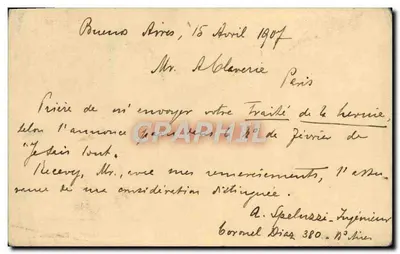 Buenos Aires, 15 Avril 1907
Mr. A Claverie
Paris
Prière de m'envoyer votre Traité de la hernie,
selon l'annonce dans le No de Février de
"Je sais tout".
Recevez, Mr., avec mes remerciements, l'assu-
rance de ma considération distinguée.
A. Speluzzi - Ingénieur
Coronel Diaz 380 - Bs Aires
CPAPHIL.COM